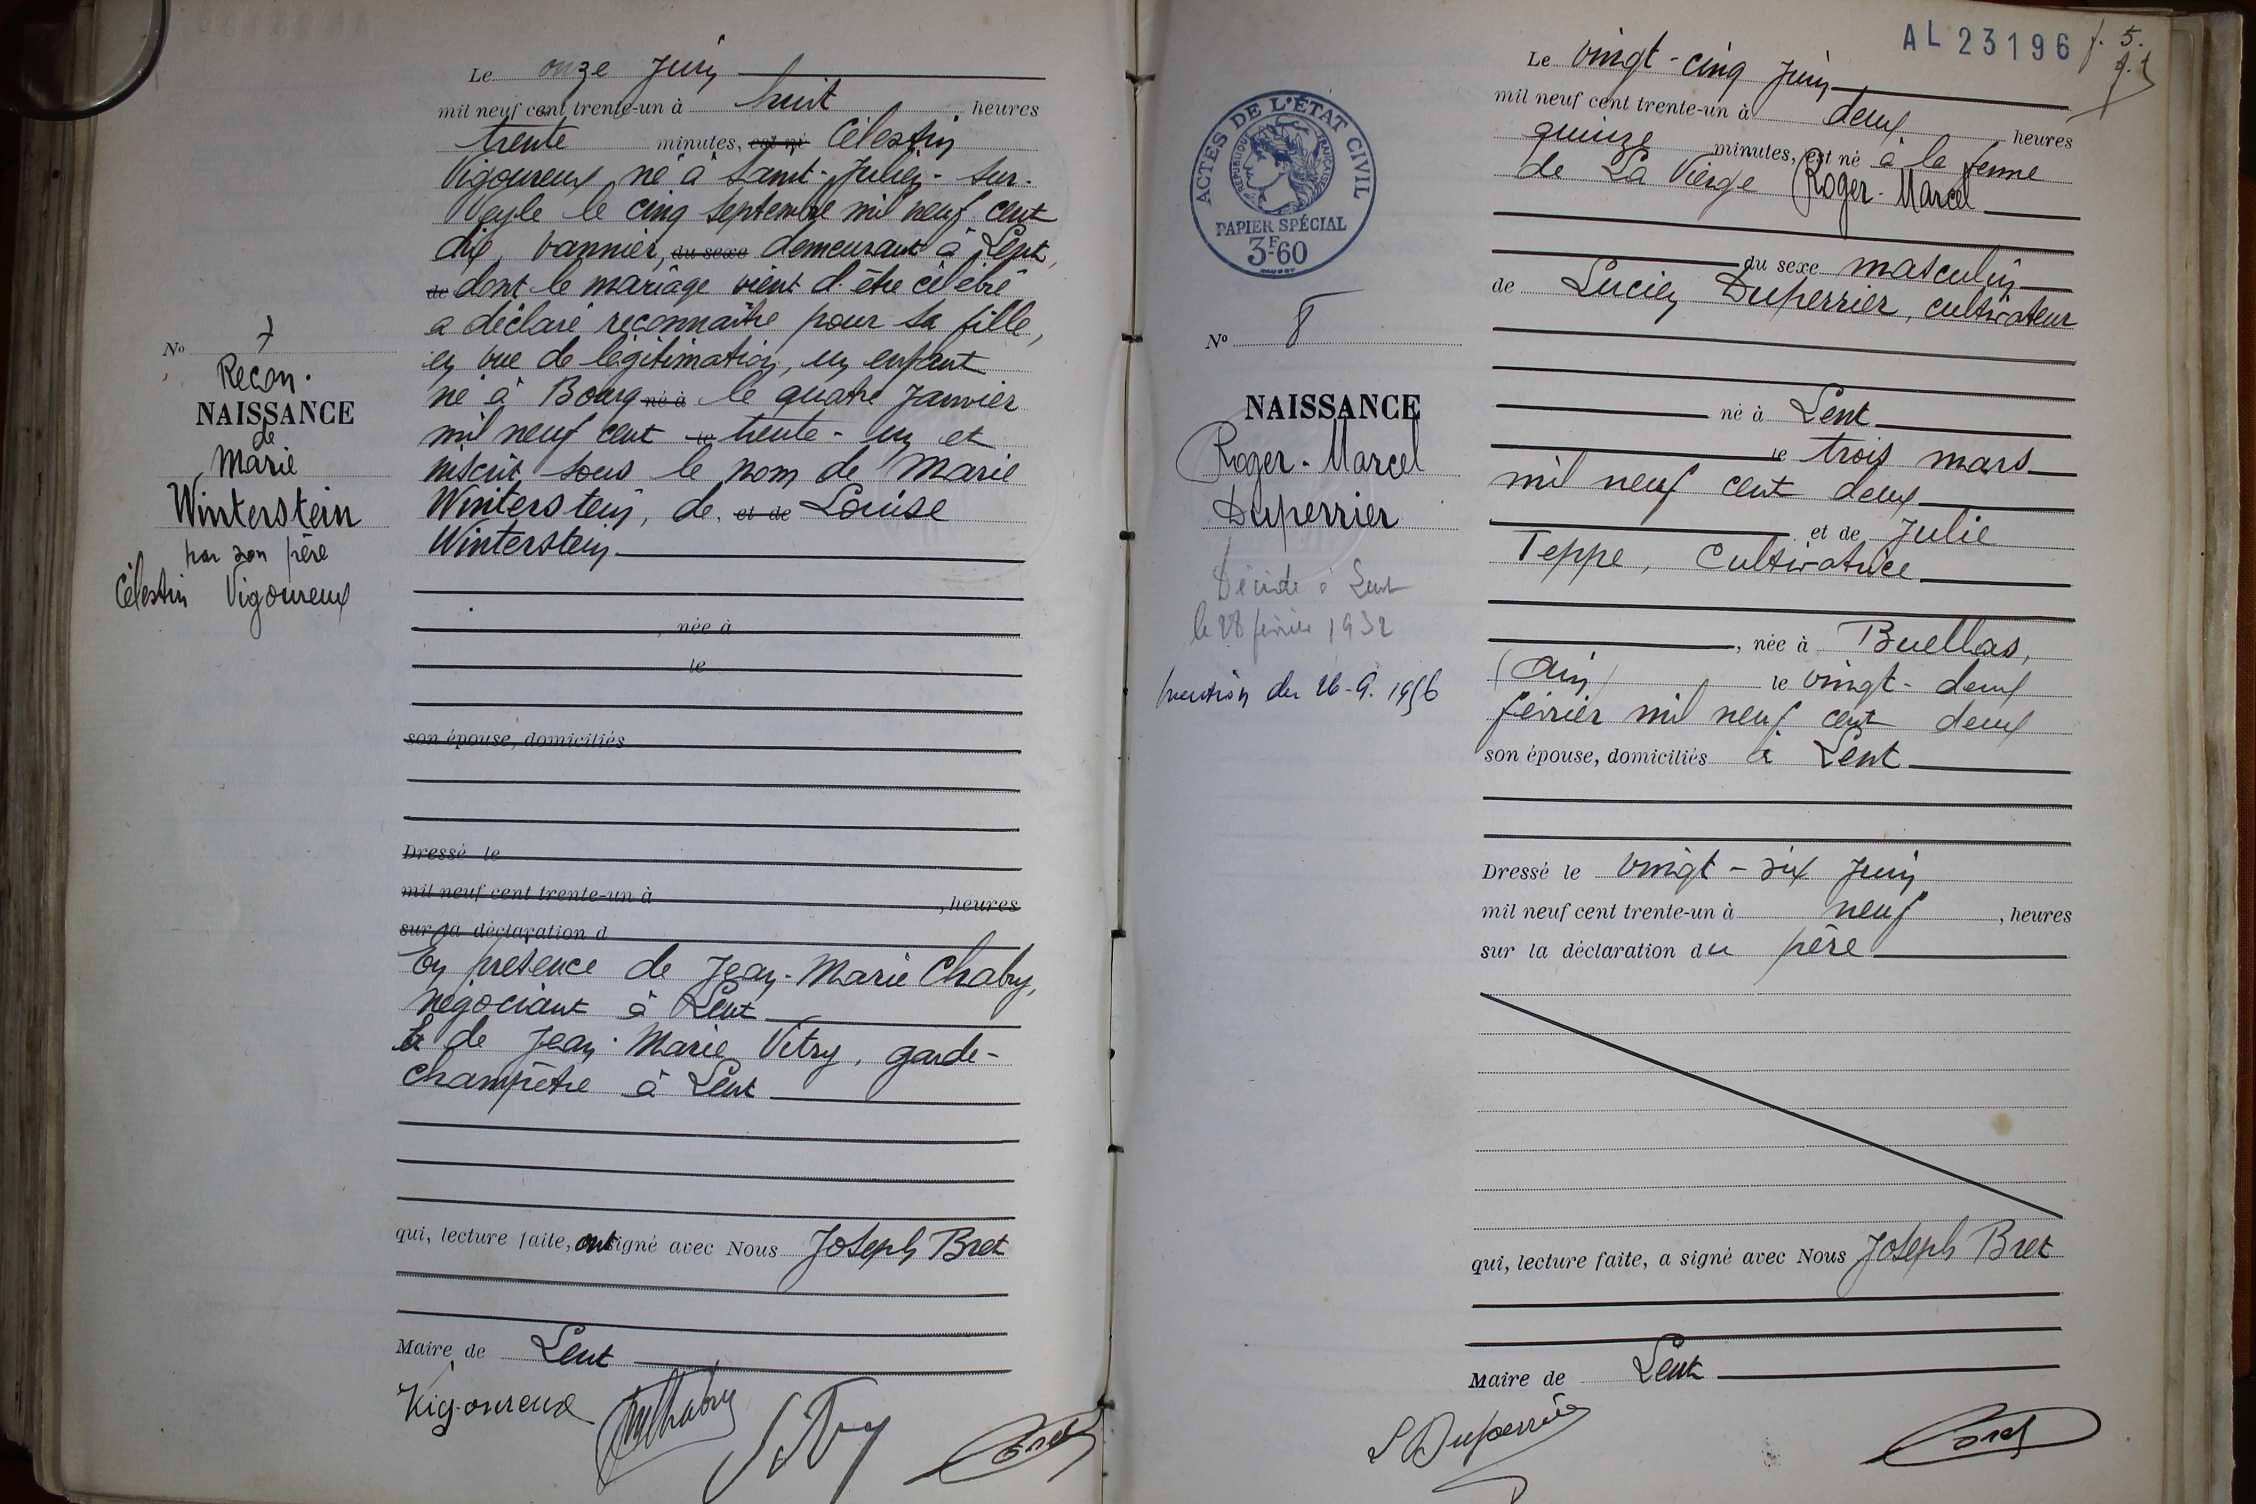 Le onze Juin
mil neuf cent trente-un à huit heures
trente minutes, est né Célestin
Vigoureux né à Saint-Julien-sur-
Veyle le cinq septembre mil neuf cent
dix, vannier, du sexe demeurant à Lent,
de dont le mariage vient d'être célébré
a déclaré reconnaître pour sa fille,
en vue de légitimation, un enfant
né à Bourg né à le quatre Janvier
mil neuf cent le trente-un et
inscrit sous le nom de Marie
Winterstein, de et de Louise
Winterstein
, née à
le
son épouse, domiciliés
Dressé le
mil neuf cent trente-un à , heures
sur la déclaration d
En présence de Jean-Marie Chabry,
négociant à Lent
Et de Jean-Marie Vitry, garde-
champêtre à Lent
qui, lecture faite, ont signé avec Nous Joseph Bret
Maire de Lent
Vigoureux
No 7
Recon.
NAISSANCE
de
Marie
Winterstein
par son père
Célestin Vigoureux
AL 23196
f. 5.
ACTES DE L'ÉTAT CIVIL
RÉPUBLIQUE FRANÇAISE
PAPIER SPÉCIAL
3F60
No 8
NAISSANCE
Roger-Marcel
Duperrier
Décédé à Lent
le 28 février 1932
mention du 26-9-1956
Le vingt-cinq Juin
mil neuf cent trente-un à deux heures
quinze minutes, est né à la ferme
de La Vierge Roger-Marcel
du sexe masculin
de Lucien Duperrier, cultivateur
né à Lent
le trois mars
mil neuf cent deux
et de Julie
Teppe, Cultivatrice
, née à Buellas,
(Ain) le vingt-deux
février mil neuf cent deux
son épouse, domiciliés à Lent
Dressé le vingt-six Juin
mil neuf cent trente-un à neuf , heures
sur la déclaration du père
qui, lecture faite, a signé avec Nous Joseph Bret
Maire de Lent
L Duperrier